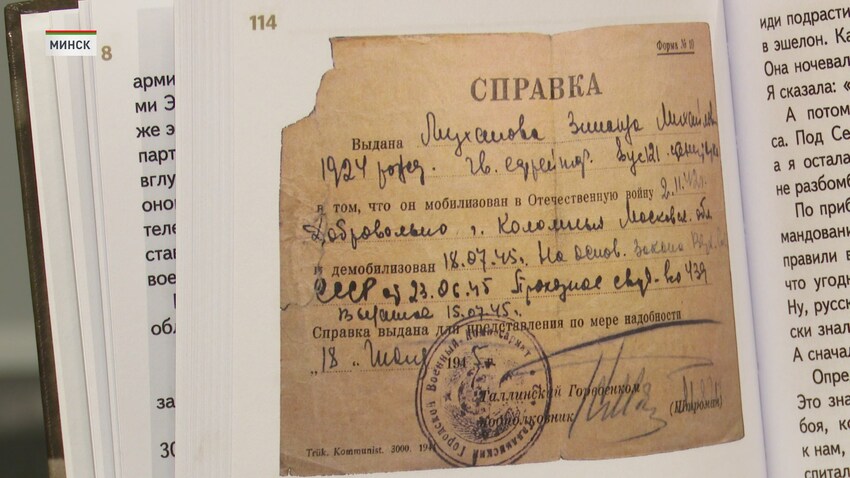 МИНСК
8
114
арми
ми Э
же э
парт
вглу
оно
теле
став
вое
обл
за
30
Форма № 10
СПРАВКА
Выдана Мухамова Зинаида Михайлов
1924 рожд. гв. ефрейтор. Вус 121
в том, что он мобилизован в Отечественную войну 2.11.42г.
Добровольно г. Коломный Московск. обл
и демобилизован 18.07.45г. На основ. Закона
СССР от 23.06.45 Проездное свид. во 439
Выдано 15.07.45г.
Справка выдана для представления по мере надобности
„18 „ Июля 1945г.
Таллинский Горвоенком
Подполковник
(Штромин)
Городской Военный Комиссариат
Trük. Kommunist. 3000. 194
иди подрасти
в эшелон. Ка
Она ночевал
Я сказала: «
А потом
са. Под Се
а я остала
не разбомб
По приб
мандовани
правили в
что угодн
Ну, русск
ски знал
А сначал
Опре
Это зна
боя, ко
к нам,
спитал